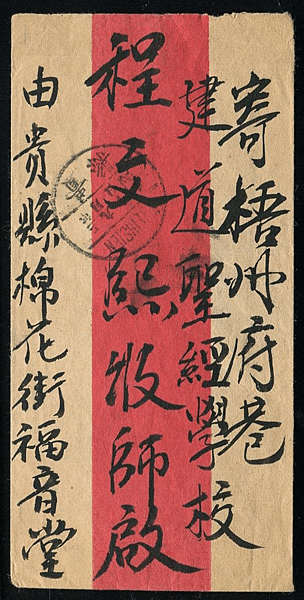 寄梧州府巷
建道聖經學校
程文熙牧師啟
由貴縣棉花街福音堂